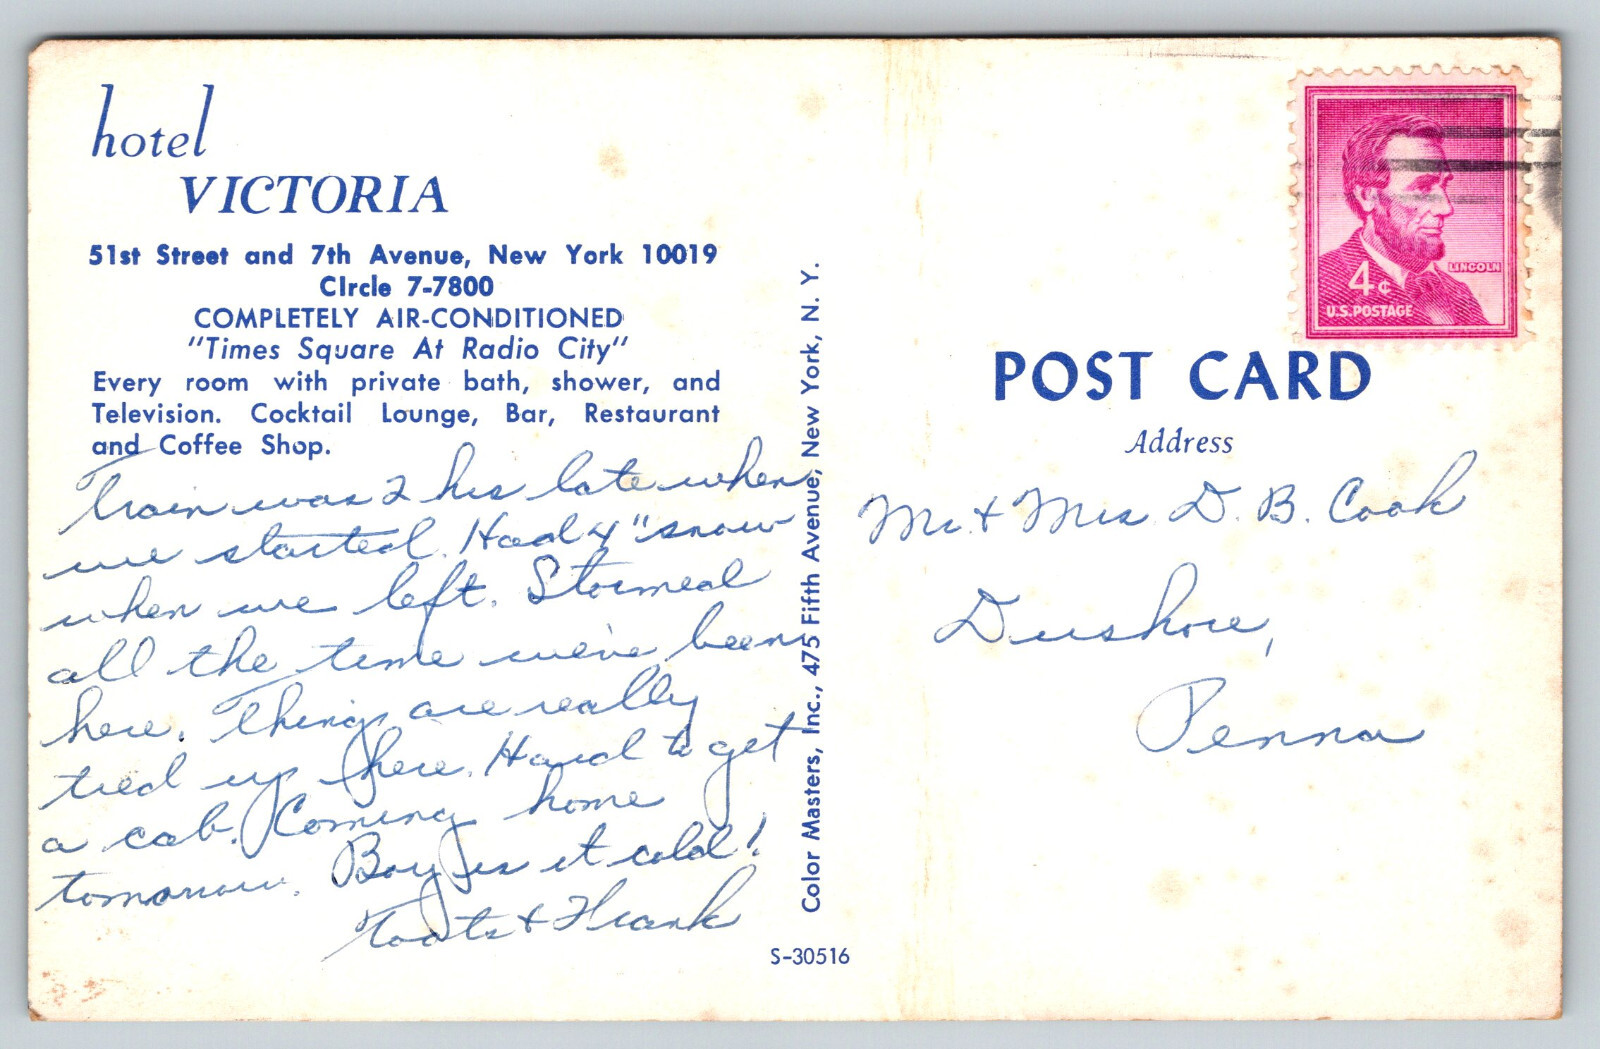 hotel
VICTORIA
51st Street and 7th Avenue, New York 10019
CIrcle 7-7800
COMPLETELY AIR-CONDITIONED
"Times Square At Radio City"
Every room with private bath, shower, and
Television. Cocktail Lounge, Bar, Restaurant
and Coffee Shop.
Train was 2 hrs late when
we started. Had 4" snow
when we left. Stormed
all the time we've been
here. Things are really
tied up here. Hard to get
a cab. Coming home
tomorrow. Boy is it cold!
Toots & Frank
Color Masters, Inc., 475 Fifth Avenue, New York, N. Y.
S-30516
4¢
LINCOLN
U.S. POSTAGE
POST CARD
Address
Mr. & Mrs D. B. Cook
Dushore,
Penna